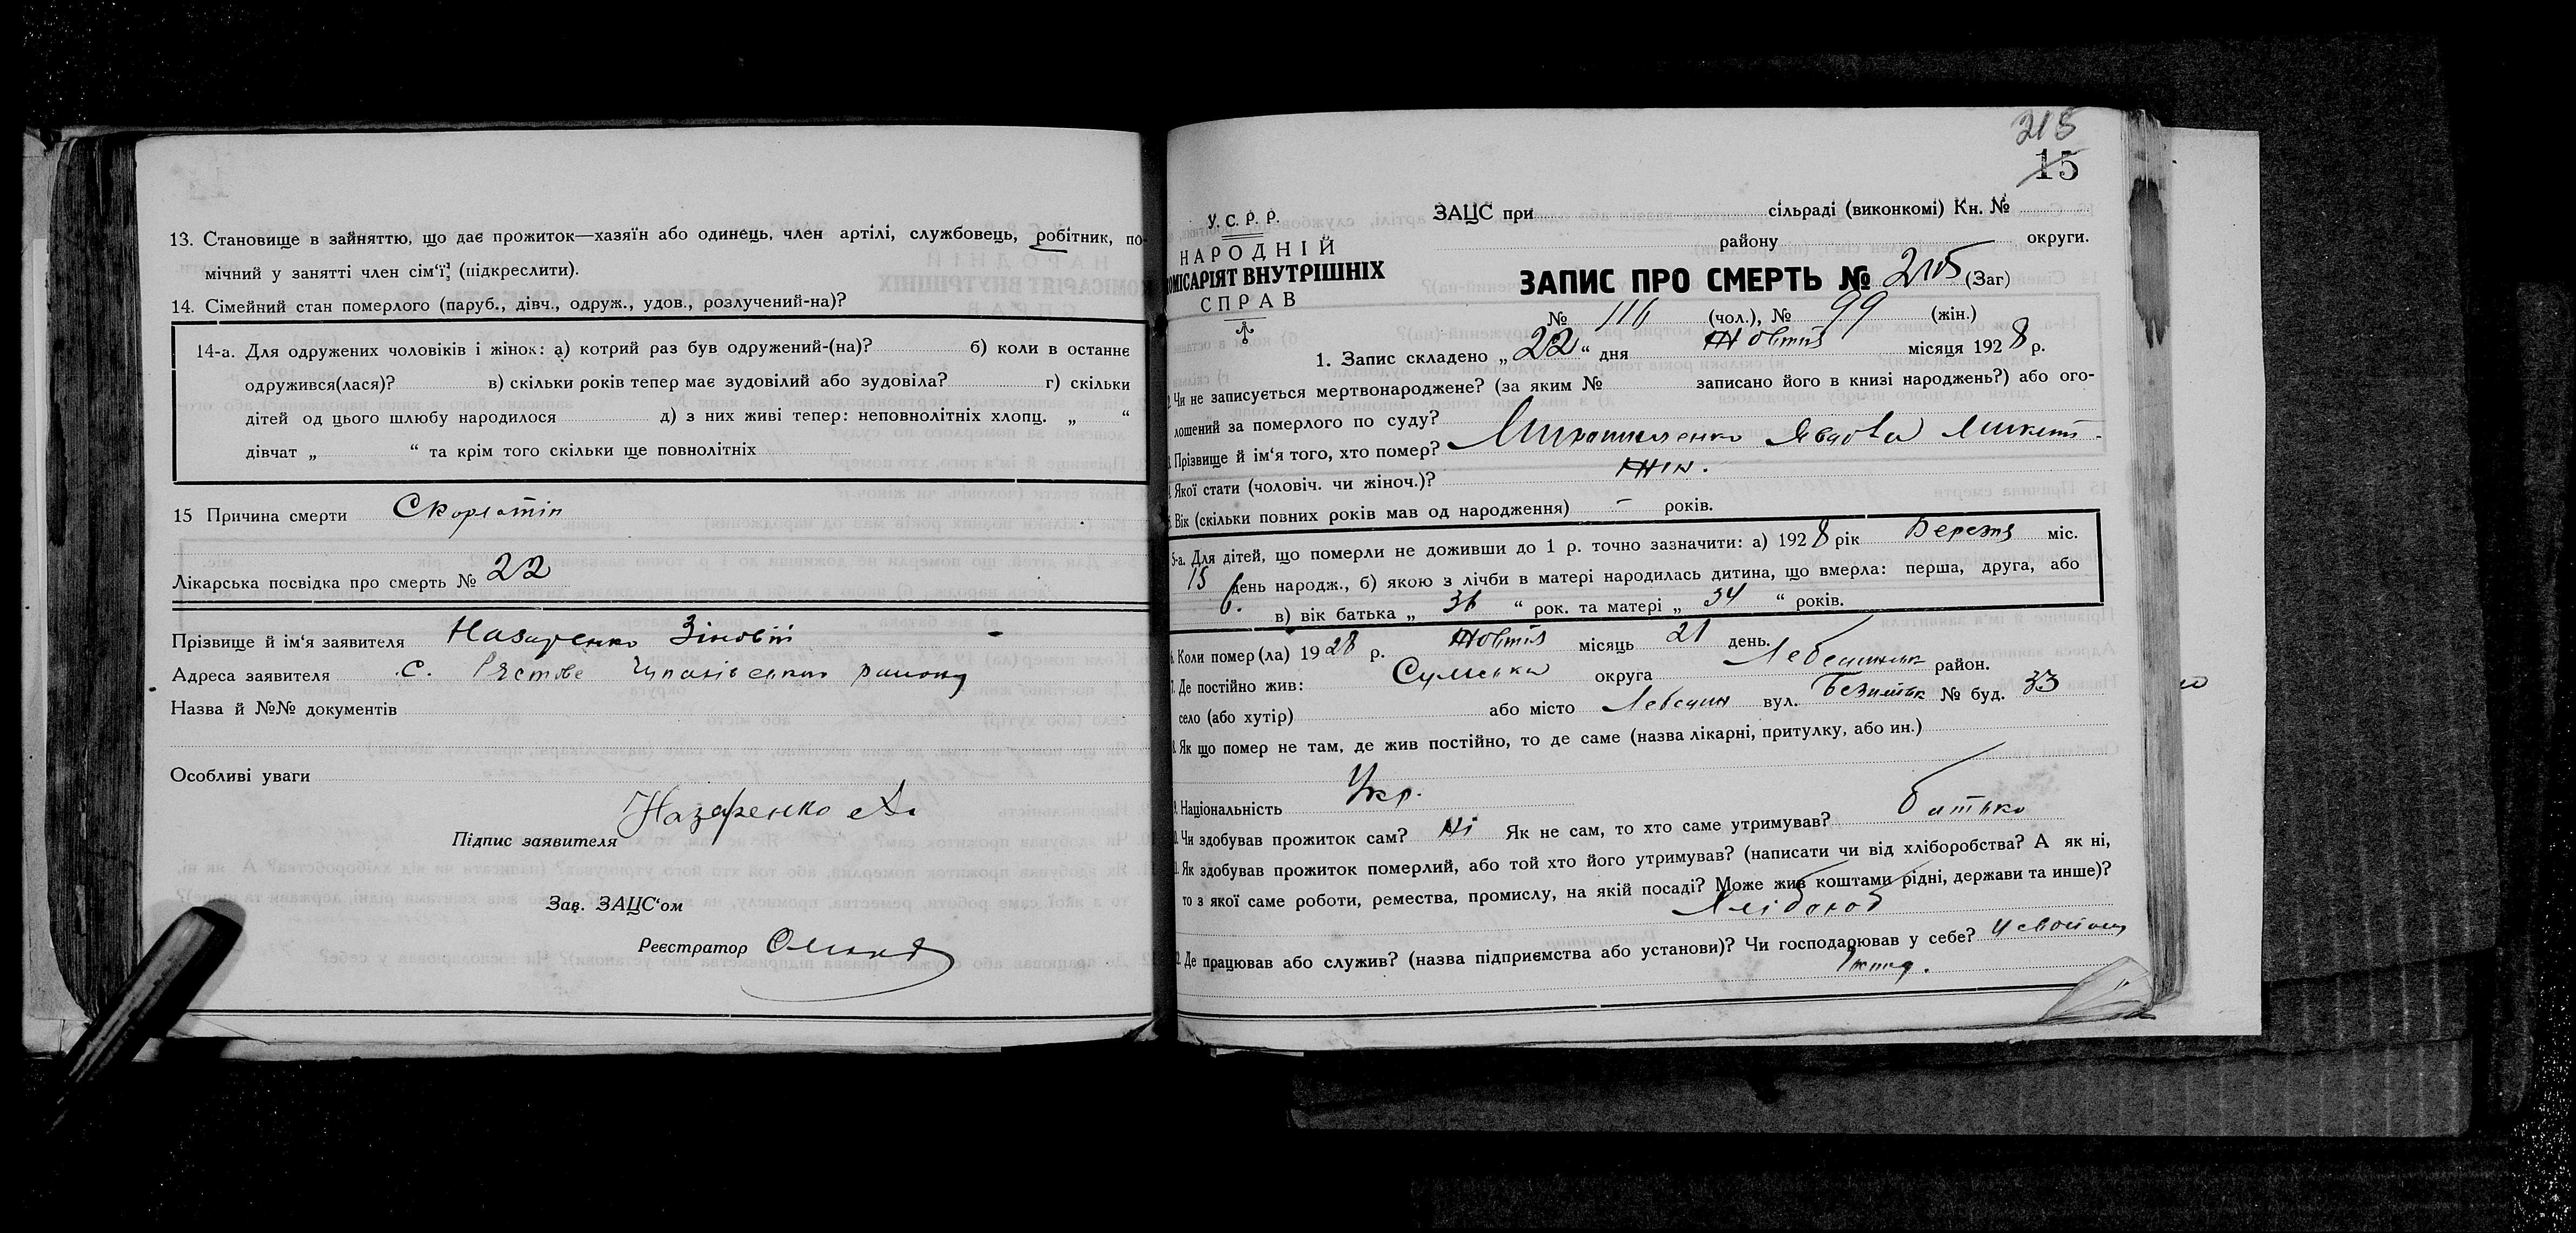 13. Становище в зайняттю, що дає прожиток—хазяїн або одинець, член артілі, службовець, робітник, по-
мічний у занятті член сім'ї, (підкреслити).
14. Сімейний стан померлого (паруб., дівч., одруж., удов., розлучений-на)?
14-а. Для одружених чоловіків і жінок: а) котрий раз був одружений-(на)? б) коли в останнє
одружився(лася)? в) скільки років тепер має зудовілий або зудовіла? г) скільки
дітей од цього шлюбу народилося д) з них живі тепер: неповнолітніх хлопц. „ “
дівчат „ “ та крім того скільки ще повнолітніх
15 Причина смерти
Лікарська посвідка про смерть № 22
Прізвище й ім'я заявителя Назаренко Зіновій
Адреса заявителя с. району
Назва й №№ документів
Особливі уваги
Підпис заявителя Назаренко
Зав. ЗАЦС'ом
Реєстратор
215
15
У. С. Р. Р.
НАРОДНІЙ
КОМІСАРІЯТ ВНУТРІШНІХ
СПРАВ
ЗАЦС при сільраді (виконкомі) Кн. №
району округи.
ЗАПИС ПРО СМЕРТЬ № 215 (Заг)
№ 116 (чол.), № 99 (жін.)
1. Запис складено „22“ дня Жовтня місяця 1928 р.
2. Чи не записується мертвонароджене? (за яким № записано його в книзі народжень?) або ого-
лошений за померлого по суду?
3. Прізвище й ім'я того, хто помер?
4. Якої стати (чоловіч. чи жіноч.)? Жін.
5. Вік (скільки повних років мав од народження) – років.
5-а. Для дітей, що померли не доживши до 1 р. точно зазначити: а) 1928 рік Березня міс.
15 день народж., б) якою з лічби в матері народилась дитина, що вмерла: перша, друга, або
6. в) вік батька „ 36 “ рок. та матері „ 34 “ років.
6. Коли помер(ла) 1928 р. Жовтня місяць 21 день.
7. Де постійно жив: Сумська округа Лебединськ район.
село (або хутір) або місто Лебедин вул. № буд. 33
8. Як що помер не там, де жив постійно, то де саме (назва лікарні, притулку, або ин.)
9. Національність Укр.
10. Чи здобував прожиток сам? Ні Як не сам, то хто саме утримував? батько
11. Як здобував прожиток померлий, або той хто його утримував? (написати чи від хліборобства? А як ні,
то з якої саме роботи, ремества, промислу, на якій посаді? Може жив коштами рідні, держави та инше)?
Хлібороб
12. Де працював або служив? (назва підприємства або установи)? Чи господарював у себе? У своїому